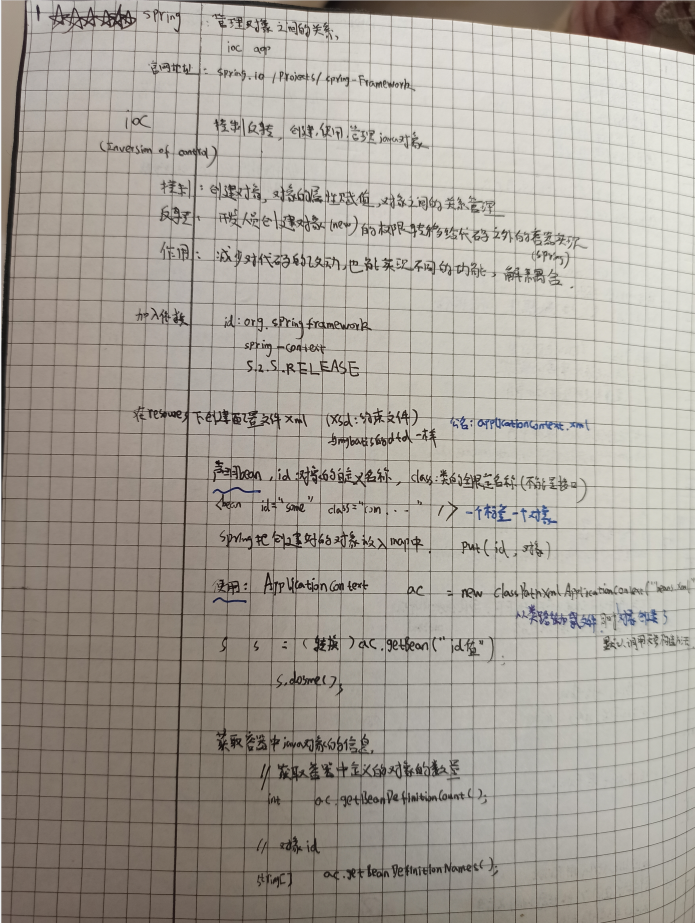 1 ☆☆☆☆☆ spring : 管理对象之间的关系,
ioc aop
官网地址 : spring.io /projects/ spring-Framework
ioc 控制反转, 创建.使用.管理java对象
(Inversion of control)
控制 : 创建对象, 对象的属性赋值, 对象之间的关系管理
反转 : 开发人员创建对象(new)的权限转移给代码之外的容器实现
(spring)
作用 : 减少对代码的改动,也能实现不同的功能, 解耦合.
加入依赖 id: org.springframework
spring-context
5.2.5.RELEASE
在resources下创建配置文件xml (xsd:约束文件) 公名: applicationContext.xml
与mybatis的dtd一样
声明bean, id:对象的自定义名称, class:类的全限定名称(不能是接口)
<bean id="some" class="com...." /> 一个标签一个对象
spring把创建好的对象放入map中. put(id, 对象)
使用: ApplicationContext ac = new ClassPathXmlApplicationContext("beans.xml"
从类路径加载文件 同时对象创建了
默认调用无参构造方法
S s = (转换) ac.getBean("id值");
s.dosme();
获取容器中java对象的信息.
// 获取容器中定义的对象的数量
int ac.getBeanDefinitionCount();
// 对象id
string[] ac.getBeanDefinitionNames();